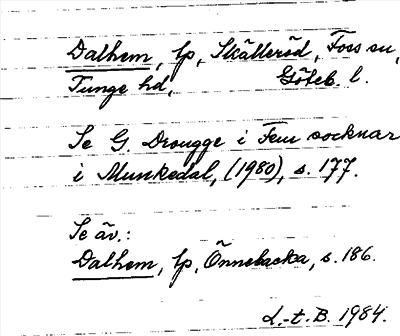 Dalhem, lp, Skälleröd, Foss sn,
Tunge hd, Göteb. l.
Se G. Drougge i Fem socknar
i Munkedal, (1980), s. 177.
Se äv.:
Dalhem, lp, Önnebacka, s. 186.
L.-t. B. 1984.